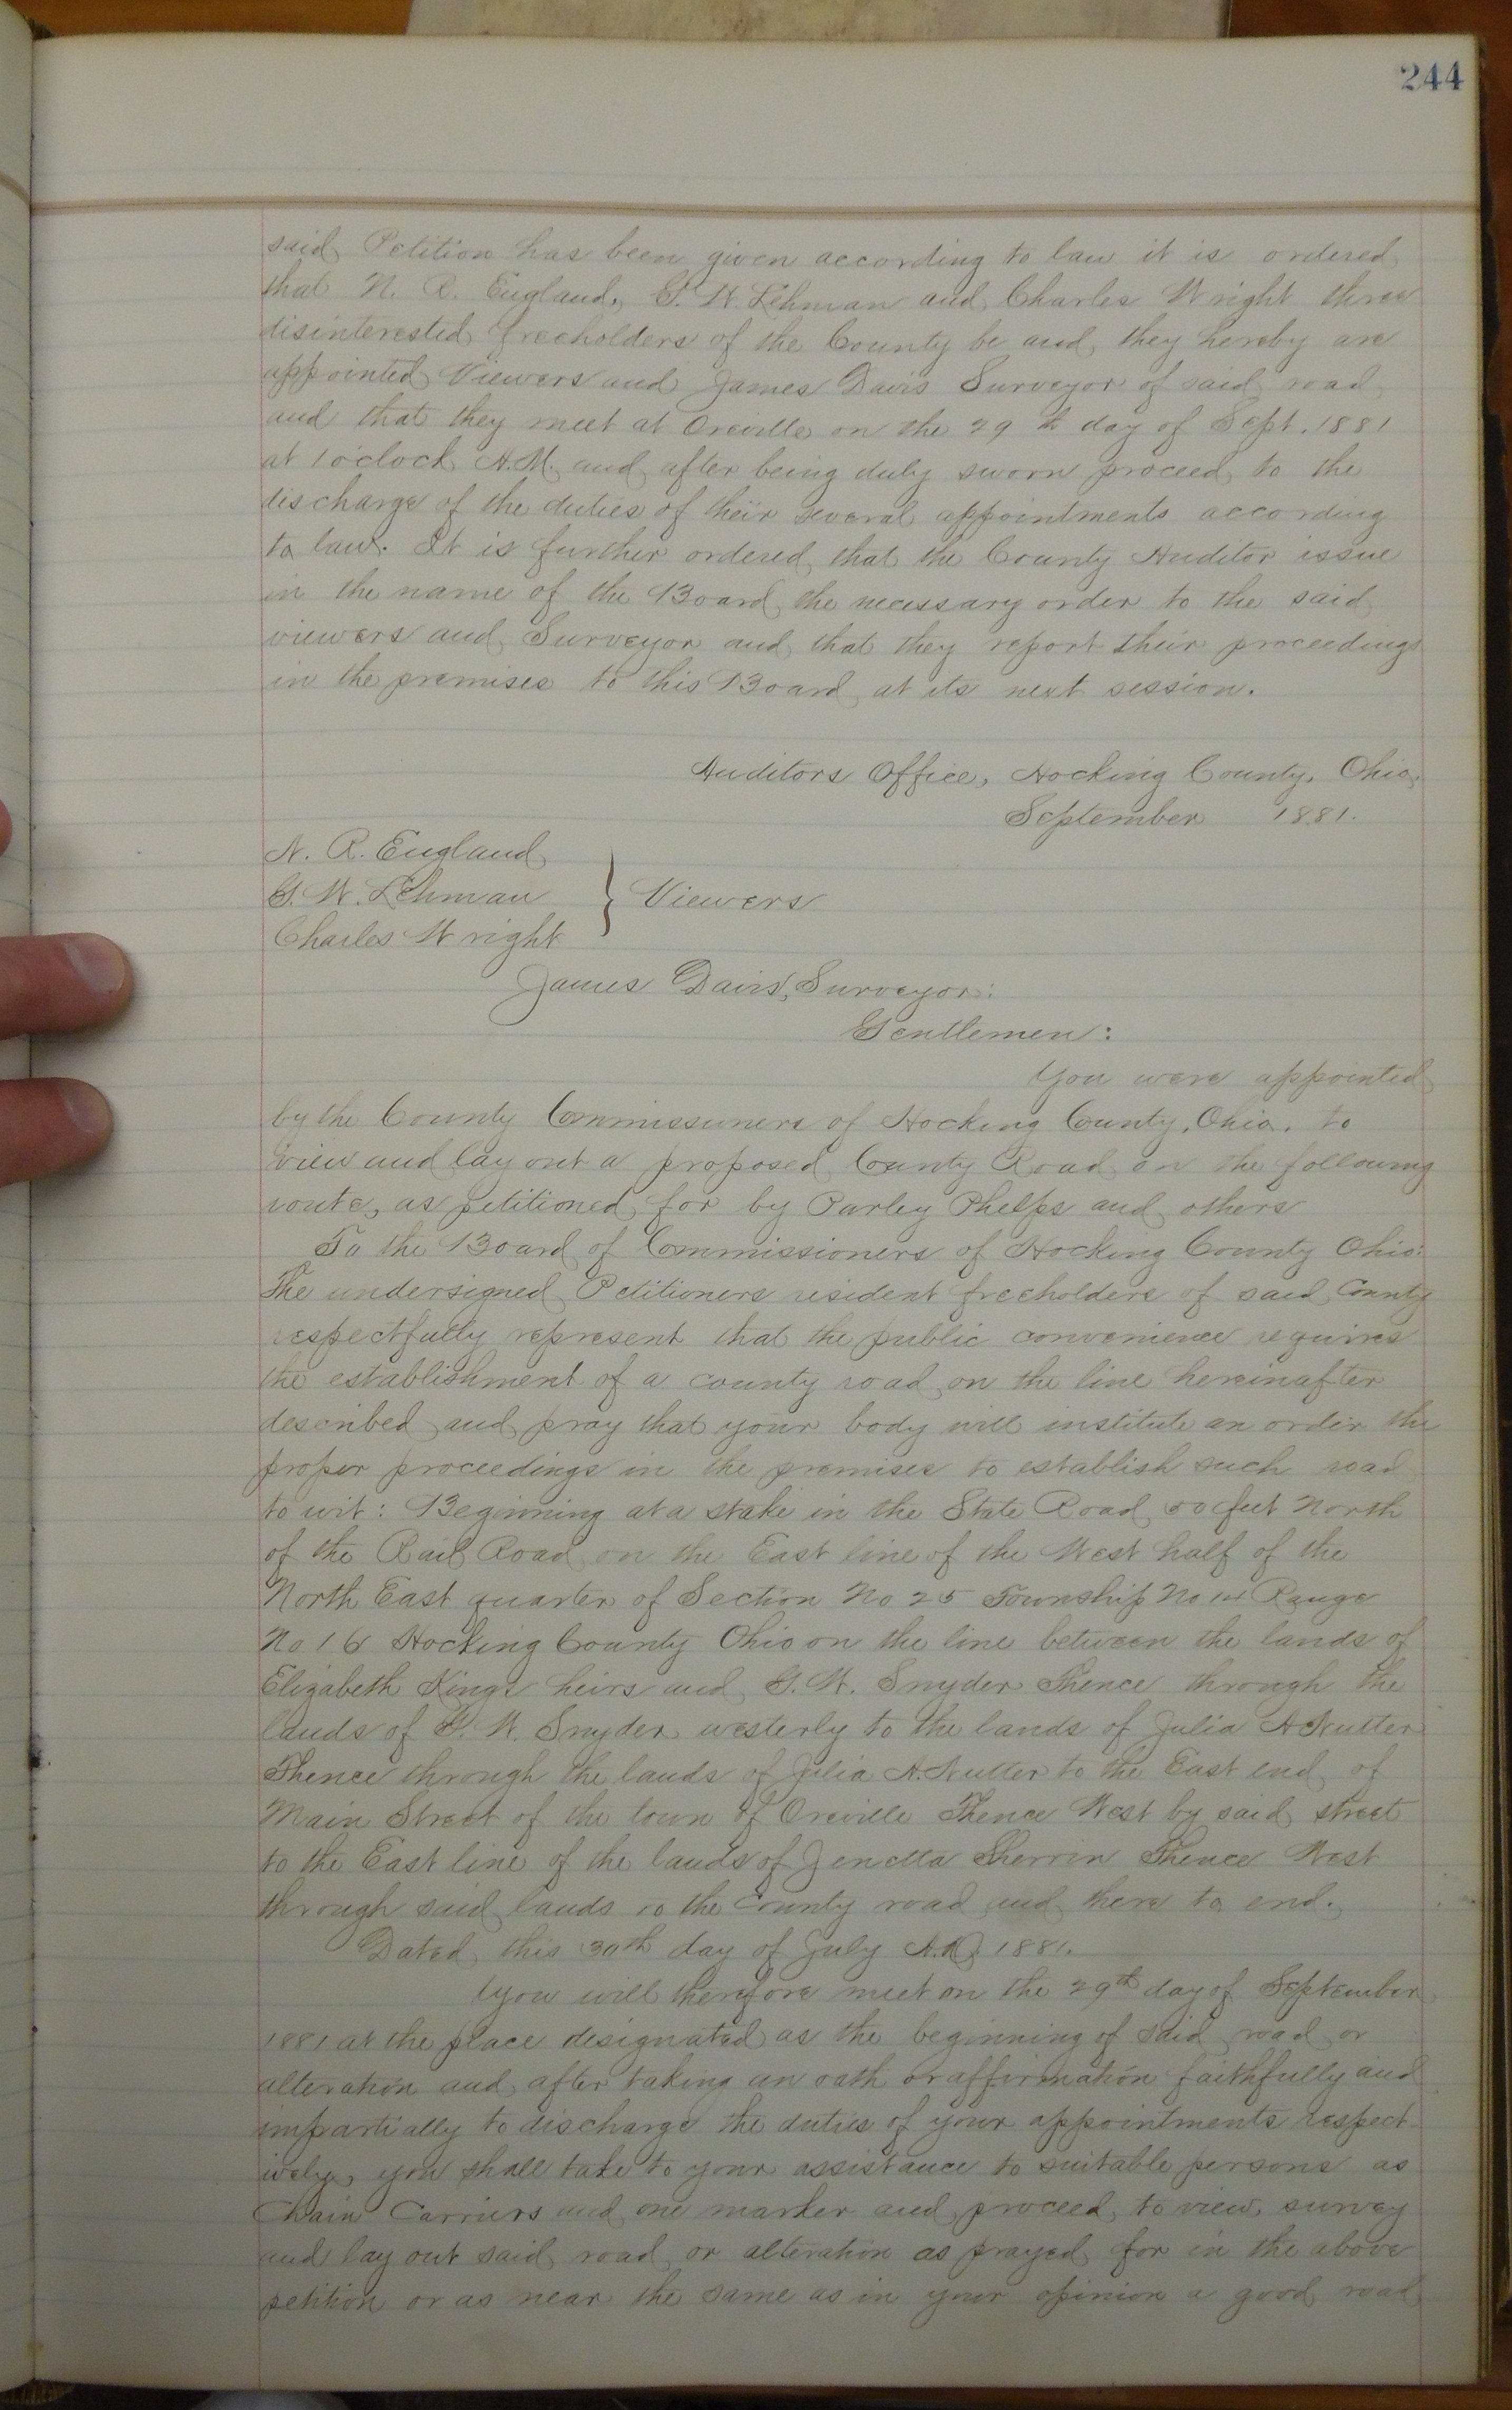 244
said Petition has been given according to law it is ordered
that N. R. England, G. W. Lehman and Charles Wright three
disinterested freeholders of the County be and they hereby are
appointed Viewers and James Davis Surveyor of said road
and that they meet at Oreville on the 29th day of Sept. 1881
at 10'clock A.M. and after being duly sworn proceed to the
discharge of the duties of their several appointments according
to law. It is further ordered that the County Auditor issue
in the name of the Board the necessary order to the said
viewers and Surveyor and that they report their proceedings
in the premises to this Board at its next session.
Auditors Office, Hocking County, Ohio,
September 1881.
N. R. England
G. W. Lehman
} Viewers
Charles Wright
James Davis, Surveyor:
Gentlemen:
You were appointed
by the County Commissioners of Hocking County, Ohio. to
view and lay out a proposed County Road on the following
route, as petitioned for by Parley Phelps and others
To the Board of Commissioners of Hocking County Ohio:
The undersigned Petitioners resident freeholders of said County
respectfully represent that the public convenience requires
the establishment of a county road on the line hereinafter
described and pray that your body will institute an order the
proper proceedings in the premises to establish such road
to wit: Beginning at a stake in the State Road feet North
of the Rail Road on the East line of the West half of the
North East quarter of Section No 25 Township No 14 Range
No 16 Hocking County Ohio on the line between the lands of
Elizabeth Kings heirs and G. W. Snyder Thence through the
lands of G. W. Snyder westerly to the lands of Julia A Nutter
Thence through the lands of Julia A. Nutter to the East end of
Main Street of the town of Oreville Thence West by said street
to the East line of the lands of Jenetta Sherrin Thence West
through said lands to the county road and there to end.
Dated this 30th day of July A.D. 1881.
You will therefore meet on the 29th day of September
1881 at the place designated as the beginning of said road or
alteration and after taking an oath or affirmation faithfully and
impartially to discharge the duties of your appointments respect-
ively, you shall take to your assistance to suitable persons as
Chain Carriers and one marker and proceed to view, survey
and lay out said road or alteration as prayed for in the above
petition or as near the same as in your opinion a good road